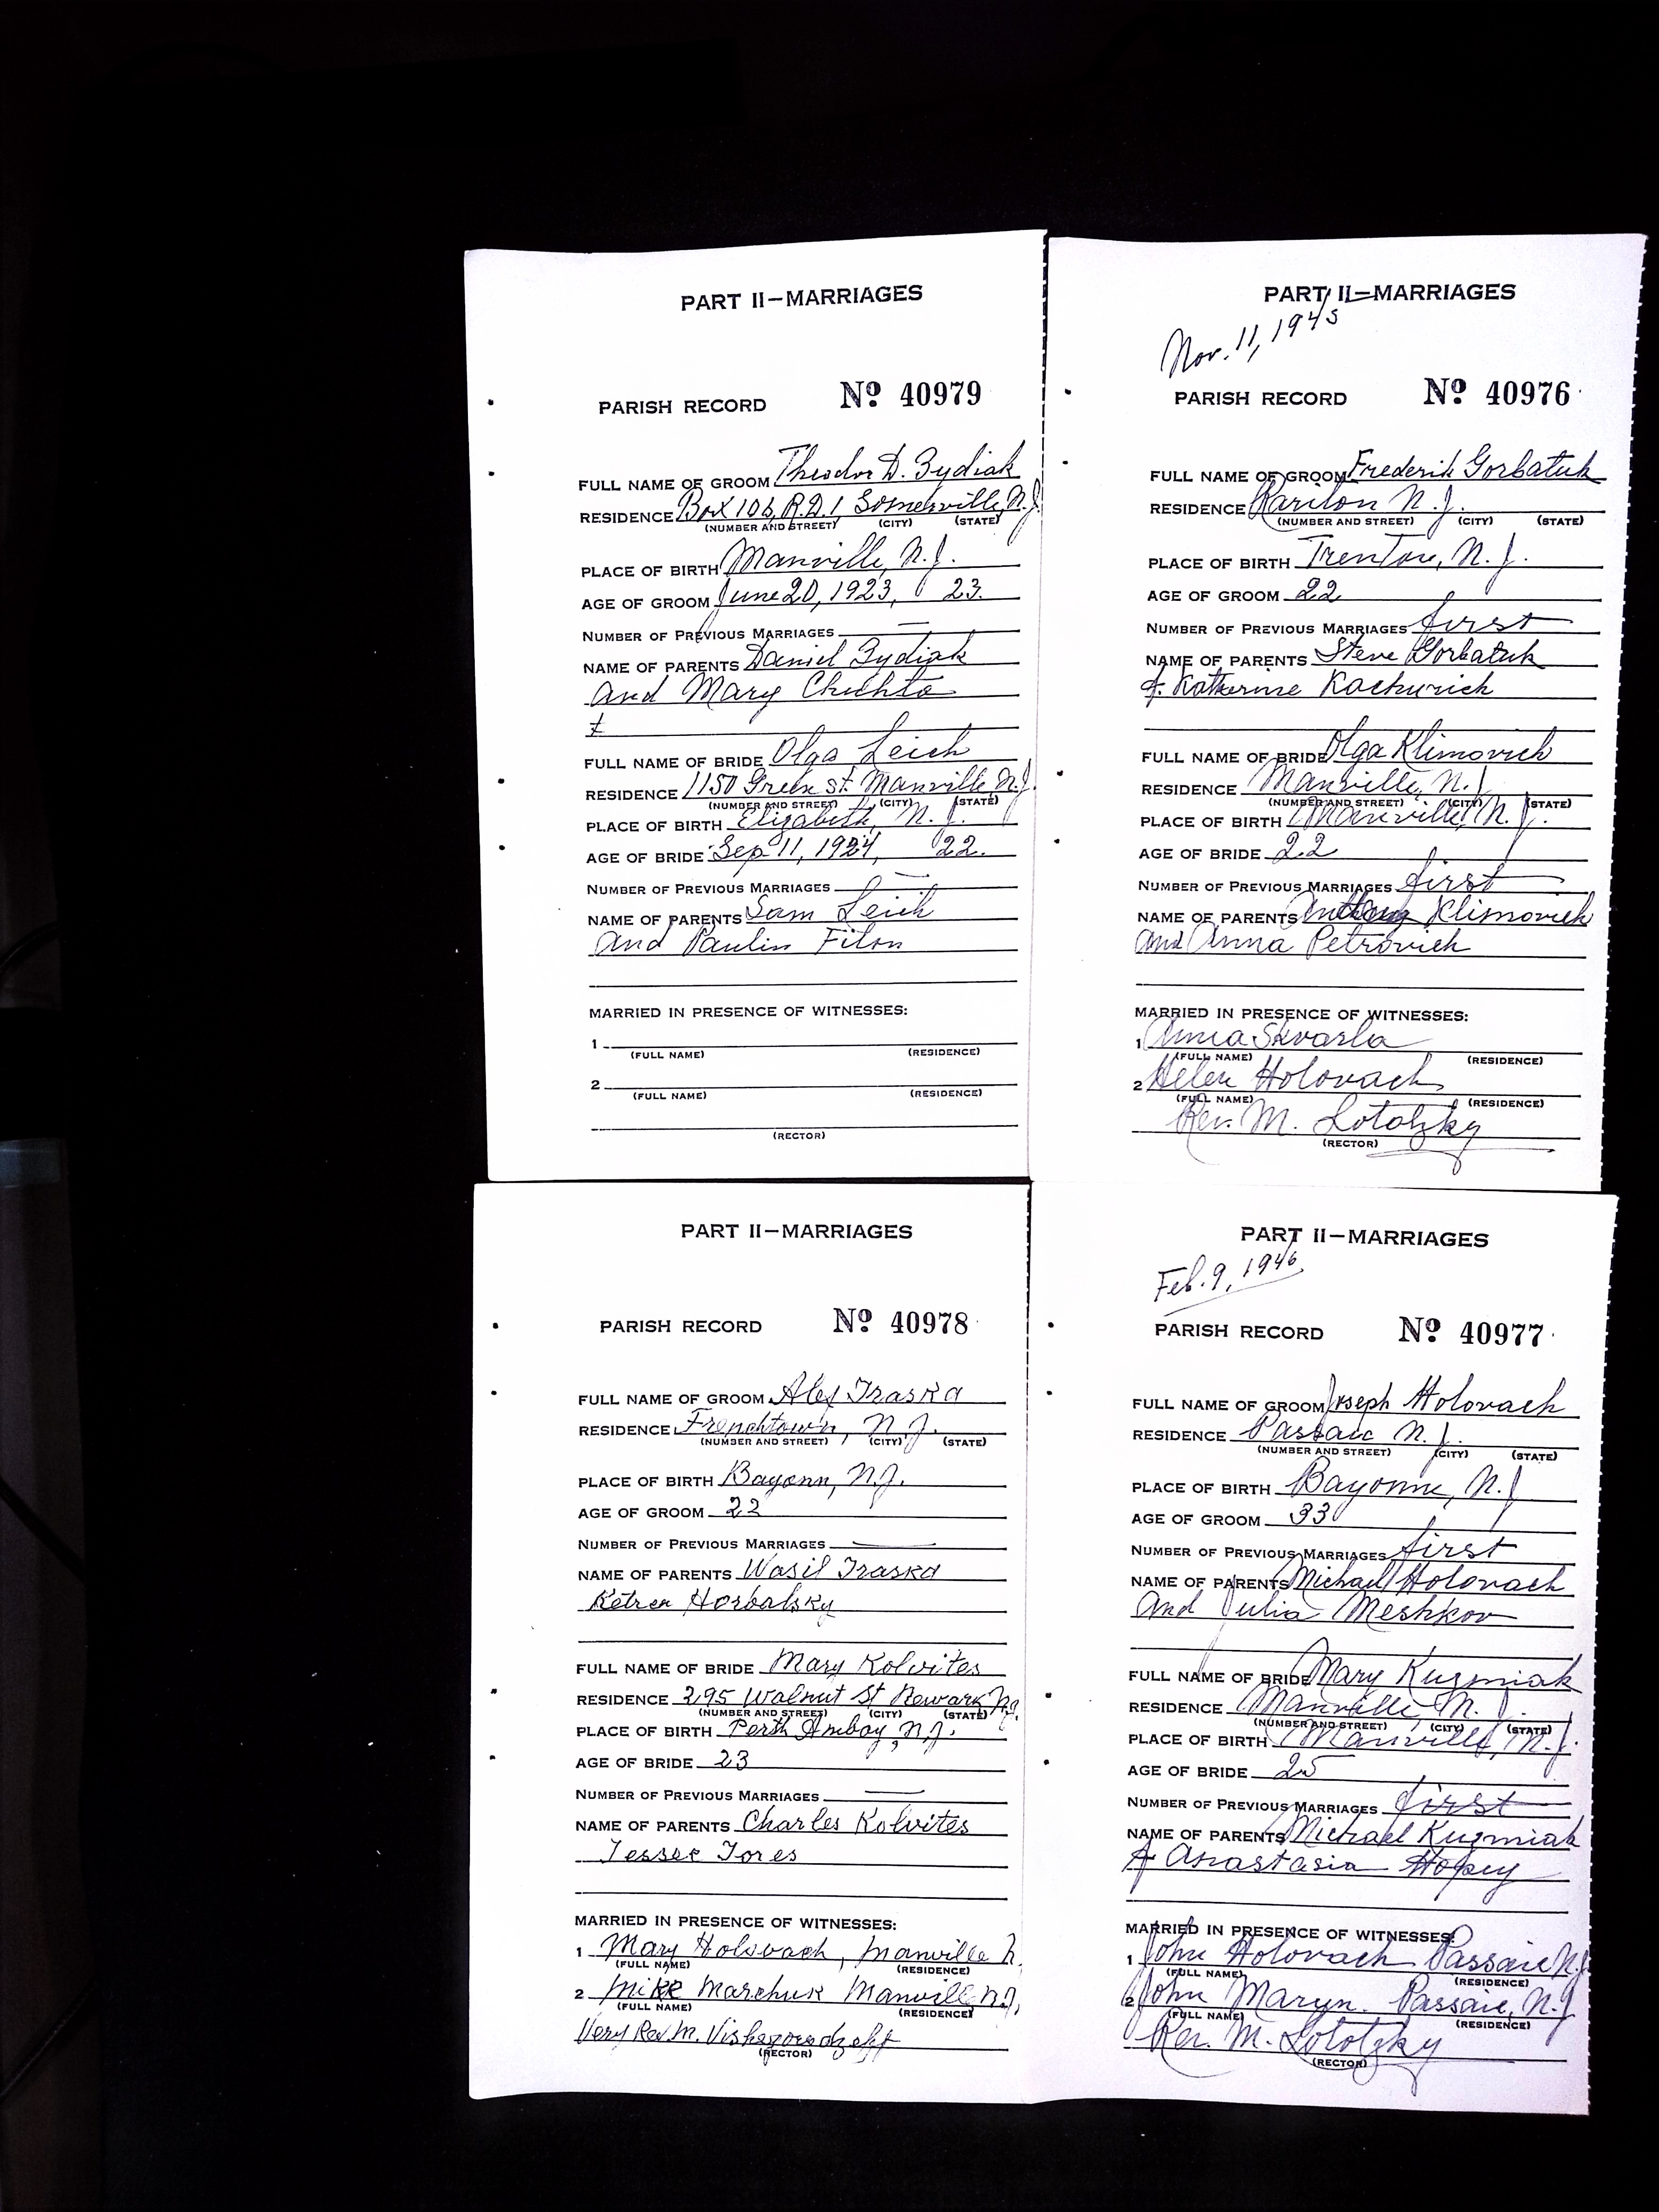 PART II—MARRIAGES
PARISH RECORD Nº 40979
FULL NAME OF GROOM Theodor D. Zydiak
RESIDENCE Box 106, R.D.1, Somerville, N.J.
(NUMBER AND STREET) (CITY) (STATE)
PLACE OF BIRTH Manville, N.J.
AGE OF GROOM June 20, 1923, 23.
NUMBER OF PREVIOUS MARRIAGES —
NAME OF PARENTS Daniel Zydiak
and Mary Chuhta
FULL NAME OF BRIDE Olga Leich
RESIDENCE 1150 Green st. Manville N.J.
(NUMBER AND STREET) (CITY) (STATE)
PLACE OF BIRTH Elizabeth, N.J.
AGE OF BRIDE Sep 11, 1924, 22.
NUMBER OF PREVIOUS MARRIAGES —
NAME OF PARENTS Sam Leich
and Paulin Filon
MARRIED IN PRESENCE OF WITNESSES:
1
(FULL NAME) (RESIDENCE)
2
(FULL NAME) (RESIDENCE)
(RECTOR)
PART II—MARRIAGES
Nov. 11, 1945
PARISH RECORD Nº 40976
FULL NAME OF GROOM Frederik Gorbatuk
RESIDENCE Rariton N.J.
(NUMBER AND STREET) (CITY) (STATE)
PLACE OF BIRTH Trenton, N.J.
AGE OF GROOM 22
NUMBER OF PREVIOUS MARRIAGES first
NAME OF PARENTS Steve Gorbatuk
& Katherine Kachurich
FULL NAME OF BRIDE Olga Klimovich
RESIDENCE Manville, N.J.
(NUMBER AND STREET) (CITY) (STATE)
PLACE OF BIRTH Manville, N.J.
AGE OF BRIDE 22
NUMBER OF PREVIOUS MARRIAGES first
NAME OF PARENTS Anthony Klimovich
and Anna Petrovich
MARRIED IN PRESENCE OF WITNESSES:
1 Anna Skvarla
(FULL NAME) (RESIDENCE)
2 Helen Holovach
(FULL NAME) (RESIDENCE)
Rev. M. Lototzky
(RECTOR)
PART II—MARRIAGES
PARISH RECORD Nº 40978
FULL NAME OF GROOM Alex Traska
RESIDENCE Frenchtown, N.J.
(NUMBER AND STREET) (CITY) (STATE)
PLACE OF BIRTH Bayonn, N.J.
AGE OF GROOM 22
NUMBER OF PREVIOUS MARRIAGES —
NAME OF PARENTS Wasil Traska
Ketren Horbalsky
FULL NAME OF BRIDE Mary Kolvites
RESIDENCE 295 Walnut St Newark N.J.
(NUMBER AND STREET) (CITY) (STATE)
PLACE OF BIRTH Perth Amboy, N.J.
AGE OF BRIDE 23
NUMBER OF PREVIOUS MARRIAGES —
NAME OF PARENTS Charles Kolvites
Tessee Tores
MARRIED IN PRESENCE OF WITNESSES:
1 Mary Holovach, Manville N.
(FULL NAME) (RESIDENCE)
2 Mike Marchuk Manville N.J.
(FULL NAME) (RESIDENCE)
Very Rev. M.
(RECTOR)
PART II—MARRIAGES
Feb. 9, 1946
PARISH RECORD Nº 40977
FULL NAME OF GROOM Joseph Holovach
RESIDENCE Passaic N.J.
(NUMBER AND STREET) (CITY) (STATE)
PLACE OF BIRTH Bayonne, N.J.
AGE OF GROOM 33
NUMBER OF PREVIOUS MARRIAGES first
NAME OF PARENTS Michael Holovach
and Julia Meshkov
FULL NAME OF BRIDE Mary Kuzmiak
RESIDENCE Manville N.J.
(NUMBER AND STREET) (CITY) (STATE)
PLACE OF BIRTH Manville, N.J.
AGE OF BRIDE 25
NUMBER OF PREVIOUS MARRIAGES first
NAME OF PARENTS Michael Kuzmiak
& Anastasia Hopey
MARRIED IN PRESENCE OF WITNESSES:
1 John Holovach Passaic N.J.
(FULL NAME) (RESIDENCE)
2 John Maryn. Passaic, N.J.
(FULL NAME) (RESIDENCE)
Rev. M. Lototzky
(RECTOR)